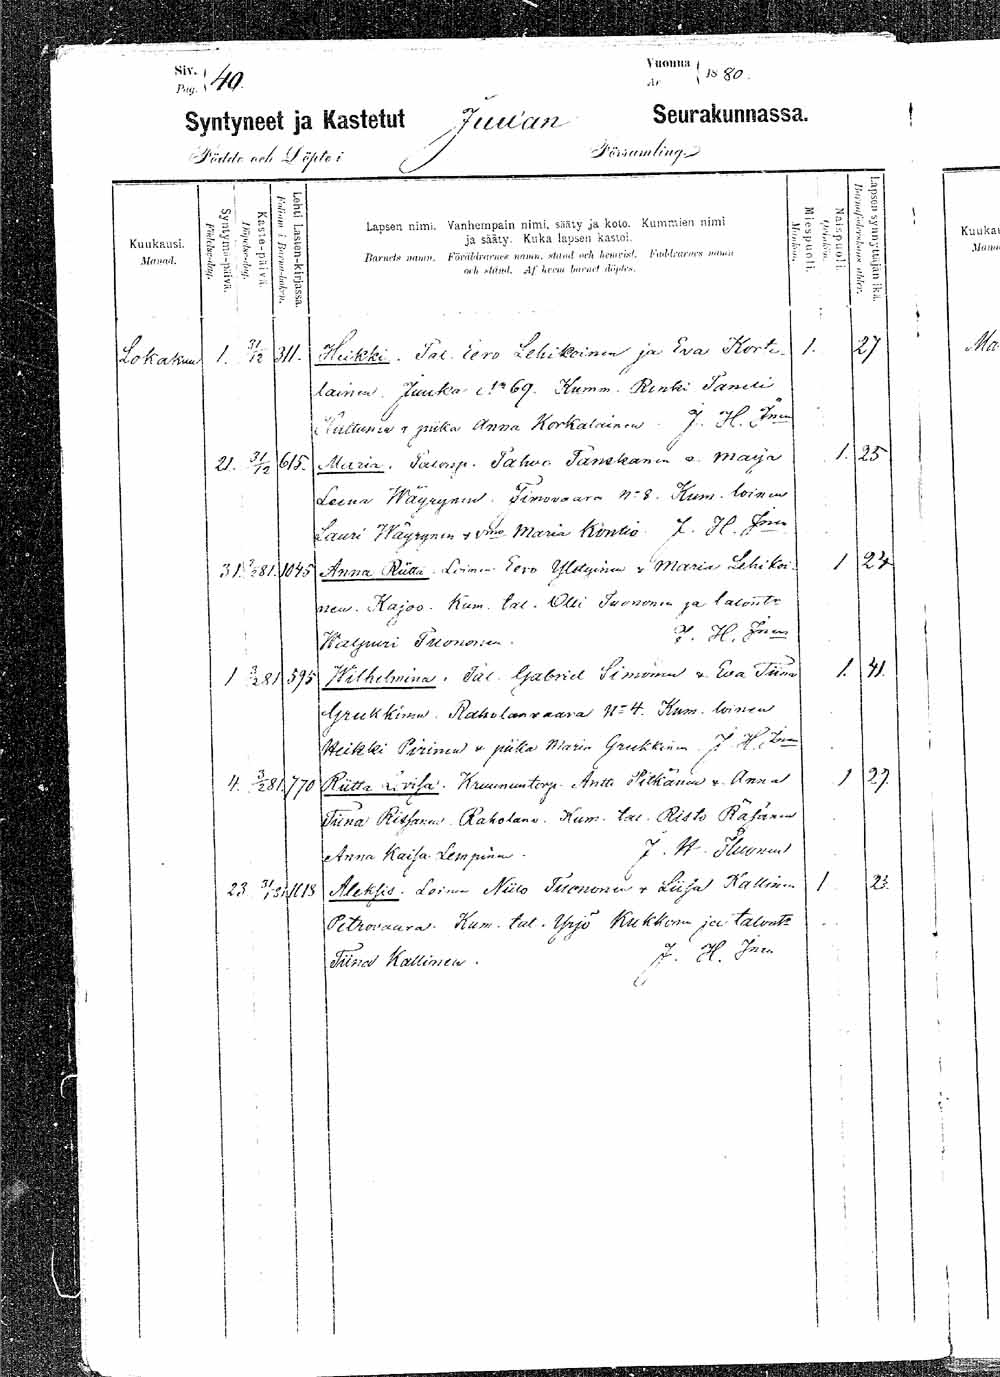 Siv. 40.
Pag.
Vuonna 1880.
År
Syntyneet ja Kastetut Juuan Seurakunnassa.
Födde och Döpte i Församling
Kuukausi.
Månad.
Syntymä-päivä.
Födelse-dag.
Kaste-päivä.
Döpelse-dag.
Lehti Lasten-kirjassa.
Folium i Barna-boken.
Lapsen nimi. Vanhempain nimi, sääty ja koto. Kummien nimi
ja sääty. Kuka lapsen kastoi.
Barnets namn. Föräldrarnes namn, stånd och hemvist. Faddrarnes namn
och stånd. Af hvem barnet döptes.
Miespuoli.
Mankön.
Naispuoli.
Qvinkön.
Lapsen synnyttäjän ikä.
Barnaföderskans ålder.
Lokakuu 1. 31/12 311. Heikki. Tal. Eero Lehikoinen ja Eva Korte- 1. 27
lainen. Juuka No 69. Kumm. Renki Taneli
Hultunen & piika Anna Korkalainen. J. H. Inen
21. 31/12 615. Maria. Talonp. Pahvo Tanskanen & Marja 1. 25
Leena Wäyrynen. Timovaara No 8. Kum. loinen
Lauri Wäyrynen & vmo Maria Kontio. J. H. Inen
31. 2/2 81. 1045 Anna Riitta. Loinen Eero Ylölyinen & Maria Lehikoi- 1 24
nen. Kajoo. Kum. tal. Olli Tuononen ja talontr
Walpuri Tuononen. J. H. Inen
1 3/2 81 595 Wilhelmina. Tal. Gabriel Simonen & Eva Tiina 1. 41.
Grekkinen. Raholanvaara No 4. Kum. loinen
Heikki Pirinen & piika Maria Grekkinen. J. H. Inen
4. 3/2 81. 770 Riitta Lovisa. Kruununtorp. Antti Pitkänen & Anna 1 29.
Tiina Rissanen. Rahola. Kum. tal. Risto Räsänen
Anna Kaisa Lempinen. J. H.
23 31/1 81. 1618 Aleksis. Loinen Niilo Tuononen & Liisa Kallinen 1 23.
Petrovaara. Kum. tal. Yrjö Kukkonen ja talontr
Tiina Kallinen. J. H. Inen
Kuukau
Månad
Ma